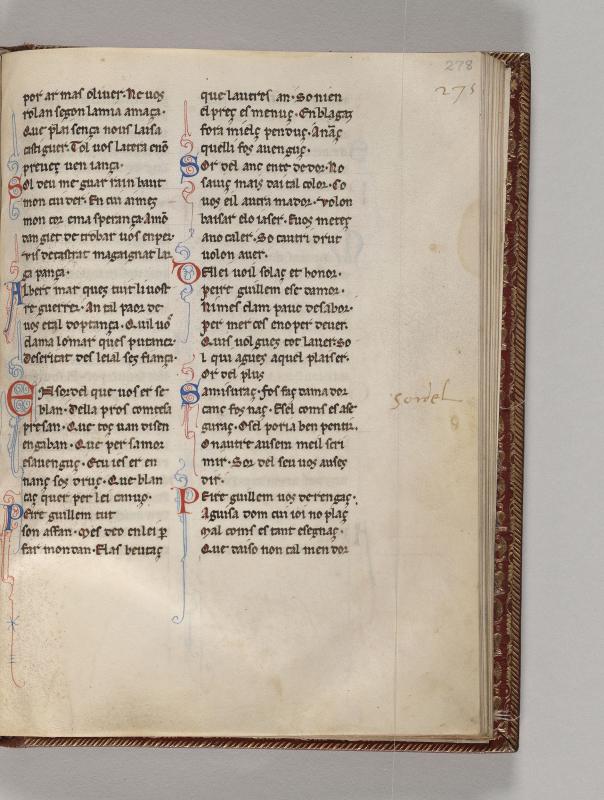 278
275
por ar mas oliuer. Ne uos
rolan segon la mia amaça.
Que plai sença nous laisa
castiguer. Tol uos la tera eno
preueç uen iança.
Sol deu me guar rain baut
mon cui der. En cui aimeç
mon cor e ma sperança. Amo
dan giet de trobar uos en per
ça pança.
Albert mar ques tuit li uost
re guerrer. An tal paor de
uos e tal doptança. Quil uo
clama lo mar ques putaner
deseritat des leial seç fiança.
En sordel que uos er se
blan. Della pros comtesa
presan. Que toç uan disen
en gaban. Que per samor
es auenguç. E cu ies er en
nanç sos druç. Que blan
caç quer per lei canuo.
Peire guillem tut
son affan. Mes deo en lei p
far mon dan. El as beutaç
que lautres an. So nien
el preç es menuç. En blagaç
fora mielç penduç. Ananç
quelli fos auenguç.
Sor del anc ente de dor. No
sauiç mais dai tal color. Co
uos eil autra mador. Volon
baisar e lo iaser. E uos meteç
a no caler. So cautri drut
uolon auer.
De llei uoil solaç et honor.
peire guillem e se damor.
Ni mes clam pauc de sabor.
per mer ces e no per deuer.
Quis uol gueç tot lauer. So
l qui agues aquel plaiser.
Or del plus
amisuraç. fos faç dama dor
canç fos naç. E sel coms es ase
guraç. O sel poria ben pentir.
On autre ausem meil scri
mir. Sor del seu uos auseç
dir.
Peire guillem uos de rengaç.
A guisa dom cui ioi no plaç
Mal coms es tant ensegnaç.
Que daiso non cal men dor
sordel